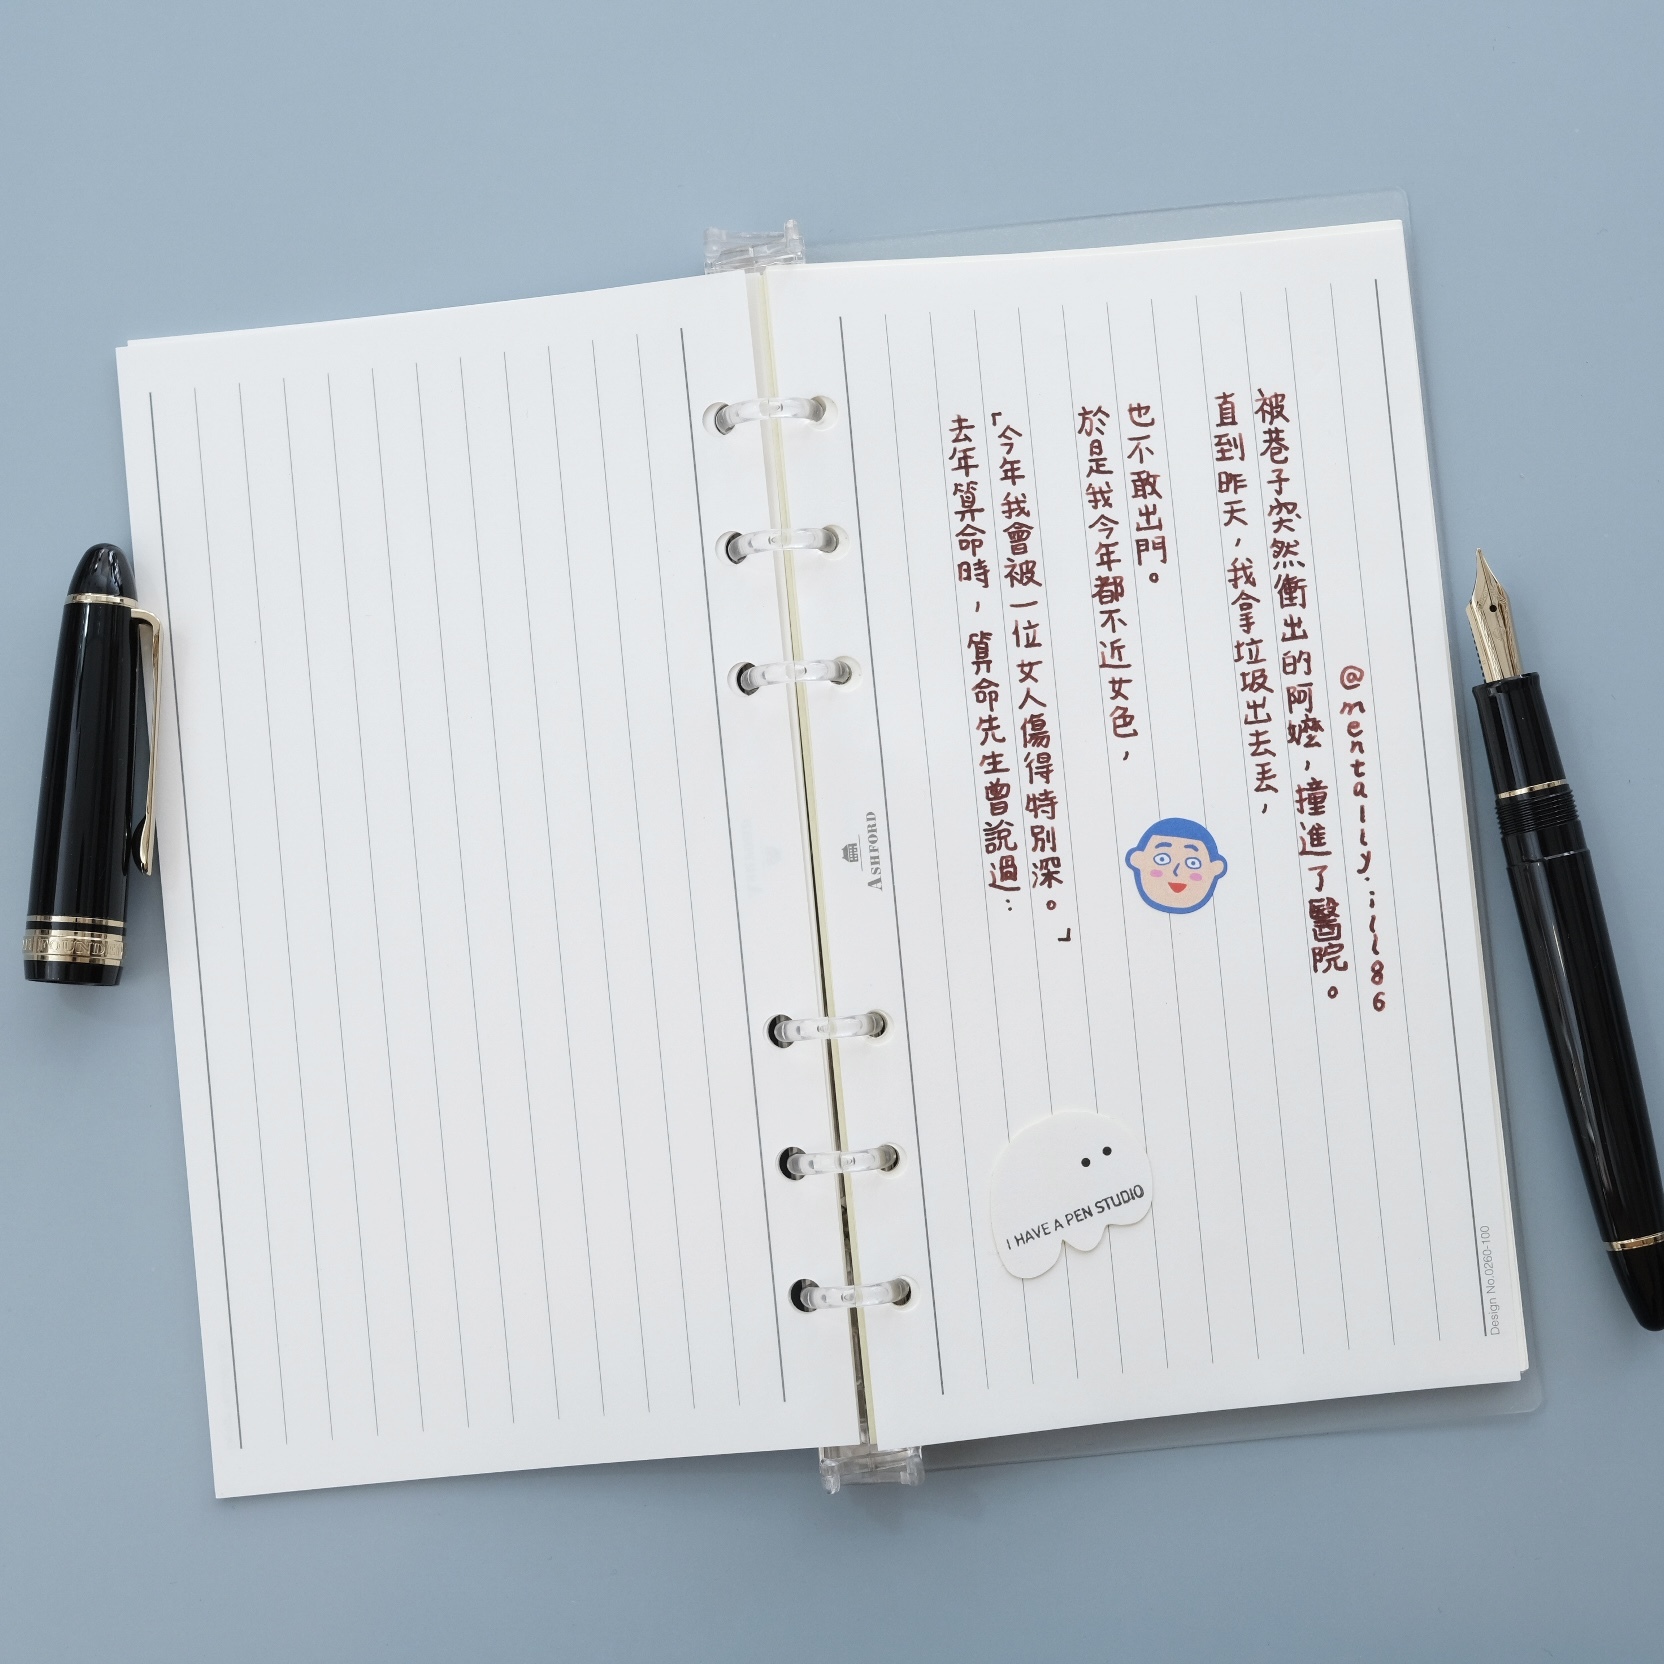 去年算命時，算命先生曾說過：
「今年我會被一位女人傷得特別深。」
於是我今年都不近女色，
也不敢出門。
直到昨天，我拿垃圾出去丟，
被巷子突然衝出的阿嬤，撞進了醫院。
@mentally.ill86
ASHFORD
I HAVE A PEN STUDIO
Design No.0260-100